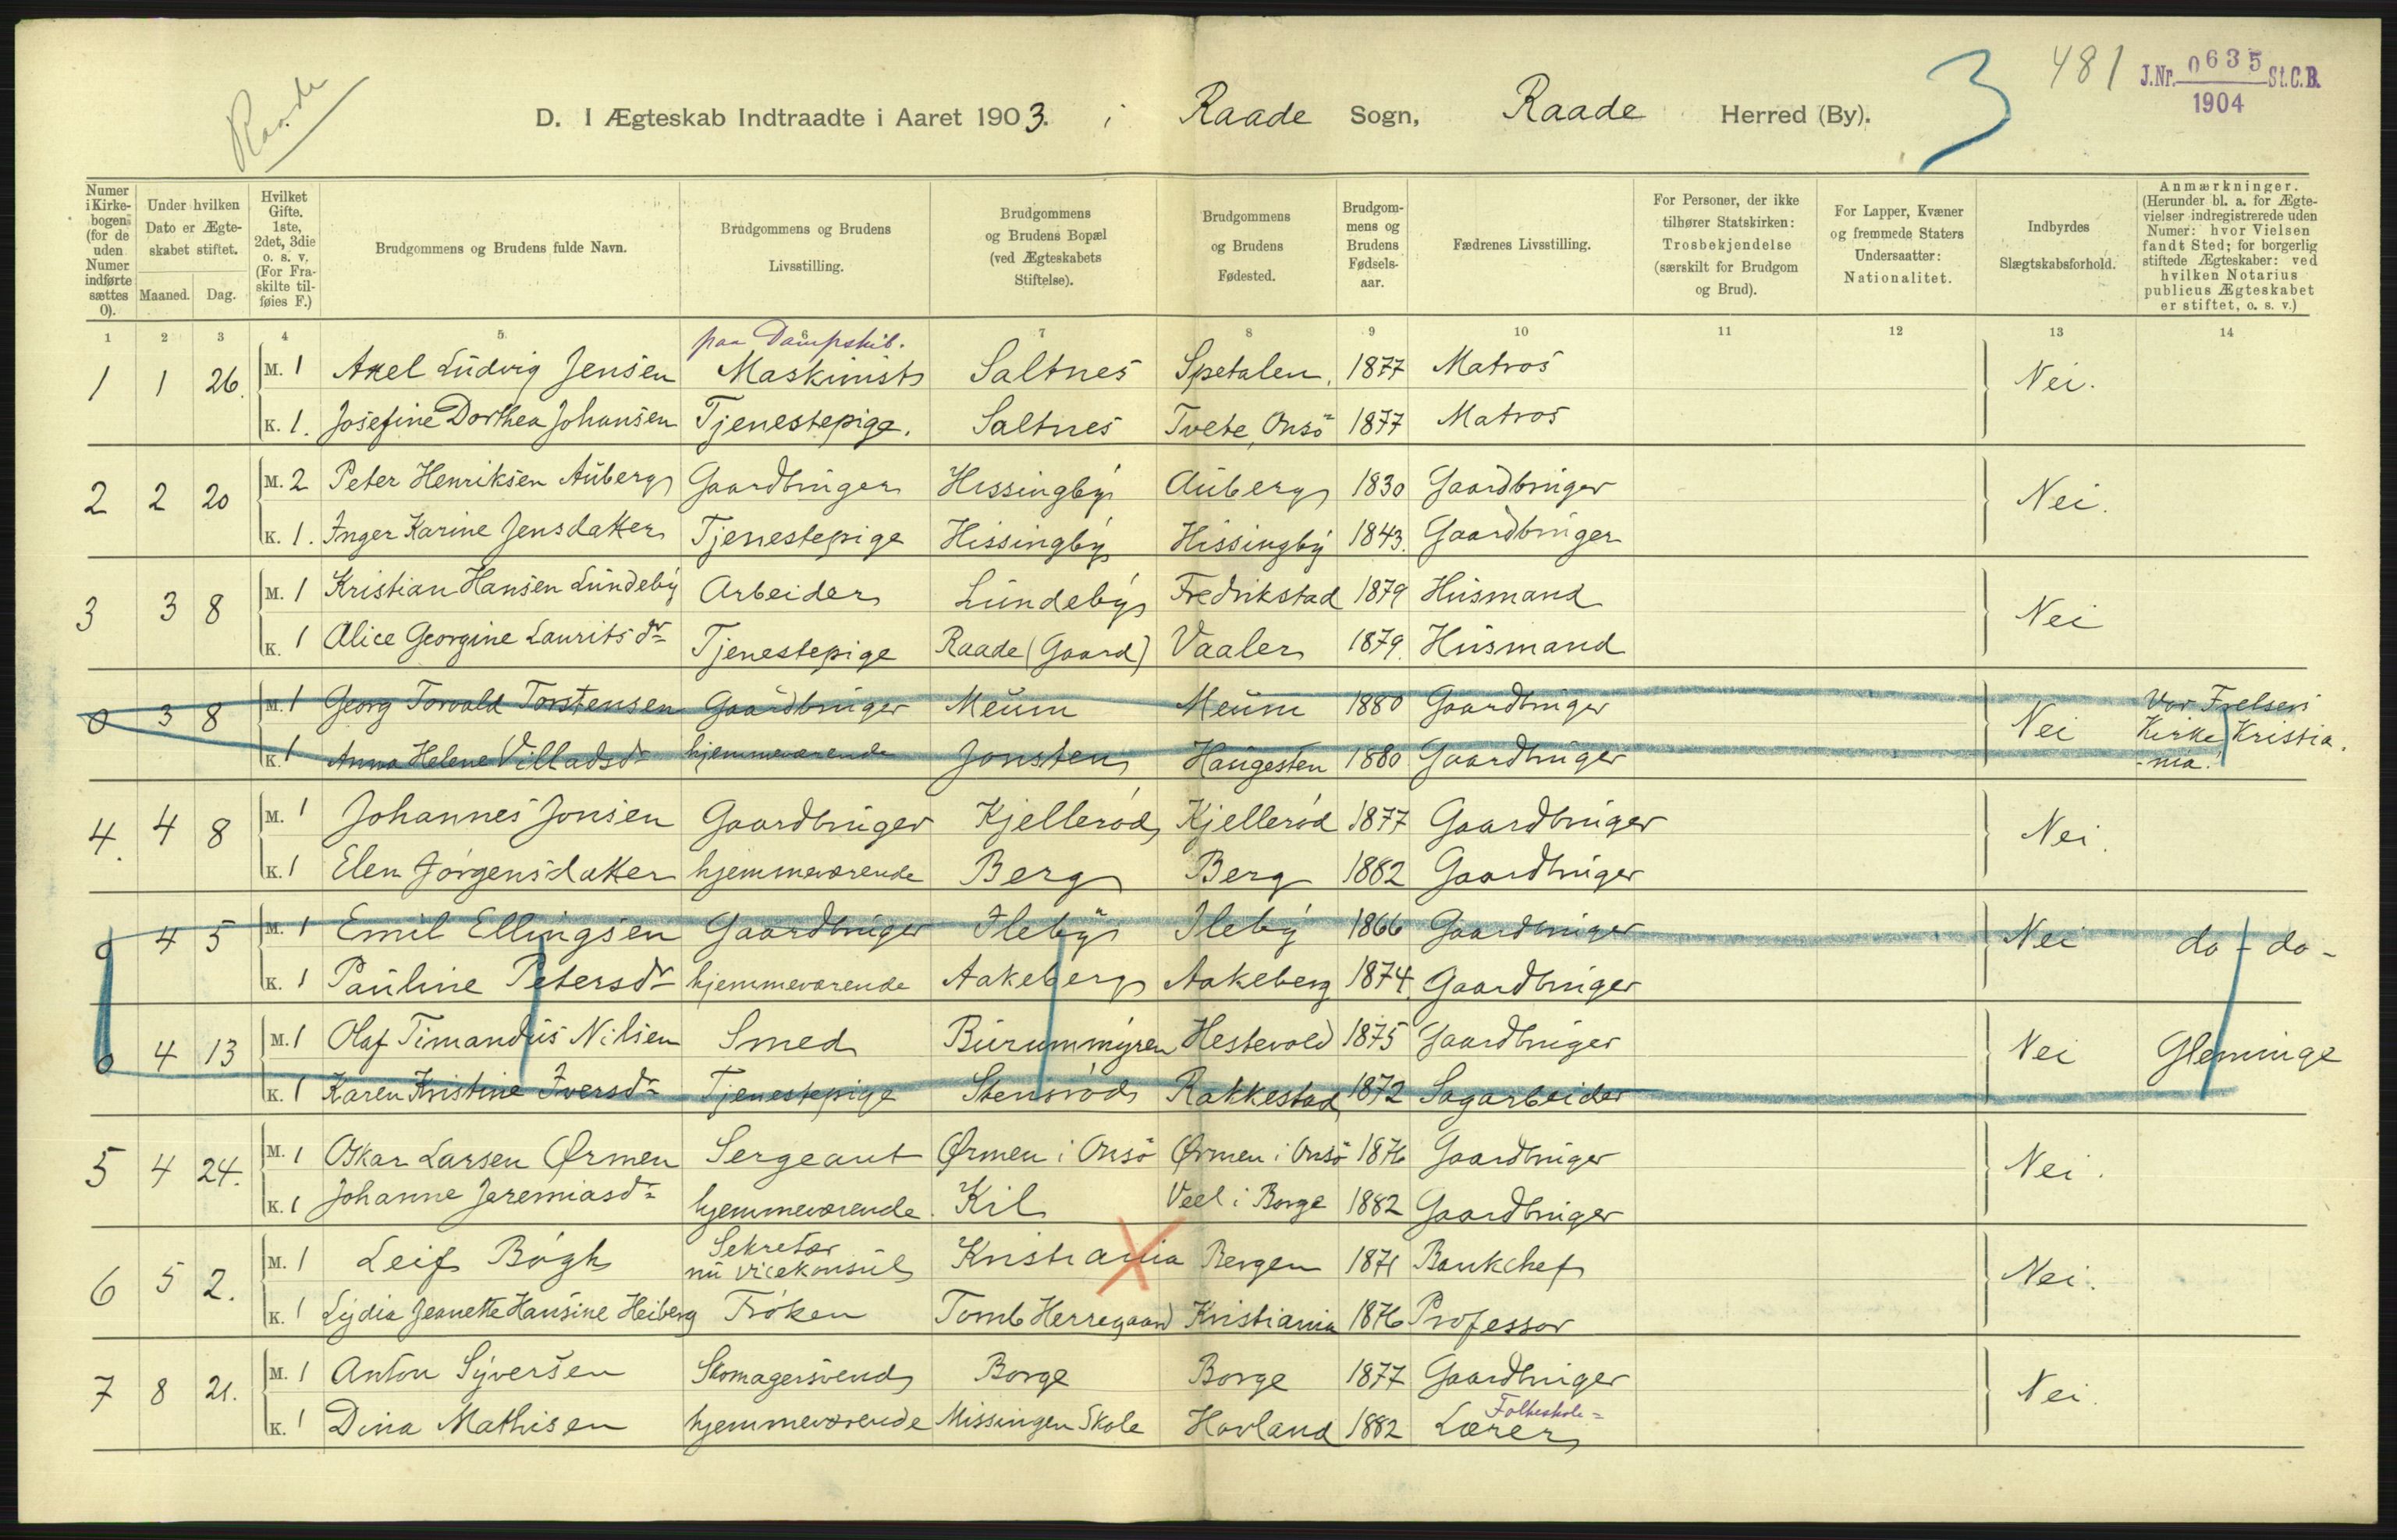 Raade
D. I Ægteskab Indtraadte i Aaret 1903. i Raade Sogn, Raade Herred (By).
3
481
J.Nr. 0635 St.C.B.
1904
Numer i Kirkebogen (for de uden Numer indførte sættes 0).
Under hvilken Dato er Ægteskabet stiftet.
Maaned. Dag.
Hvilket Gifte. 1ste, 2det, 3die o. s. v. (For Fraskilte tilføies F.)
Brudgommens og Brudens fulde Navn.
Brudgommens og Brudens Livsstilling.
Brudgommens og Brudens Bopæl (ved Ægteskabets Stiftelse).
Brudgommens og Brudens Fødested.
Brudgommens og Brudens Fødselsaar.
Fædrenes Livsstilling.
For Personer, der ikke tilhører Statskirken: Trosbekjendelse (særskilt for Brudgom og Brud).
For Lapper, Kvæner og fremmede Staters Undersaatter: Nationalitet.
Indbyrdes Slægtskabsforhold.
Anmærkninger. (Herunder bl. a. for Ægtevielser indregistrerede uden Numer: hvor Vielsen fandt Sted; for borgerlig stiftede Ægteskaber: ved hvilken Notarius publicus Ægteskabet er stiftet, o. s. v.)
1 2 3 4 5 6 7 8 9 10 11 12 13 14
paa Dampskib.
1 1 26. M. 1 Axel Ludvig Jensen Maskinist Saltnes Spetalen. 1877 Matros Nei.
K. 1. Josefine Dorthea Johansen Tjenestepige. Saltnes Tvete, Onsö 1877 Matros
2 2 20 M. 2 Peter Henriksen Auberg Gaardbruger Hissingby Auberg 1830 Gaardbruger Nei.
K. 1. Inger Karine Jensdatter Tjenestepige Hissingby Hissingby 1843. Gaardbruger
3 3 8 M. 1 Kristian Hansen Lundeby Arbeider Lundeby Fredrikstad 1879 Husmand Nei
K. 1 Alice Georgine Laurits dr Tjenestepige Raade (Gaard) Vaaler 1879. Husmand
0 3 8 M. 1 Georg Torvald Torstensen Gaardbruger Meum Meum 1880 Gaardbruger Nei Vor Frelsers Kirke, Kristia-nia.
K. 1 Anna Helene Villadsdr hjemmeværende Jonsten Haugesten 1880 Gaardbruger
4. 4 8 M. 1 Johannes Jonsen Gaardbruger Kjellerød Kjellerød 1877 Gaardbruger Nei.
K. 1 Elen Jörgensdatter hjemmeværende Berg Berg 1882 Gaardbruger
0 4 5 M. 1 Emil Ellingsen Gaardbruger Ileby Ileby 1866 Gaardbruger Nei do - do -
K. 1 Pauline Petersdr hjemmeværende Aakeberg Aakeberg 1874. Gaardbruger
0 4 13 M. 1 Olaf Timandus Nilsen Smed Burummyren Hestevold 1875 Gaardbruger Nei Glemminge
K. 1 Karen Kristine Iversdr Tjenestepige Stensrød Rakkestad 1872 Sagarbeider
5 4 24. M. 1 Oskar Larsen Ørmen Sergeant Ørmen i Onsö Ørmen i Onsö 1876 Gaardbruger Nei.
K. 1 Johanne Jeremiasdr hjemmeværende. Kil Veel i Borge 1882 Gaardbruger
6 5 2. M. 1 Leif Bögh Sekretær nu vicekonsul Kristiania Bergen 1871 Bankchef Nei.
K. 1 Lydia Jeanette Hansine Heiberg Fröken Tomb Herregaard Kristiania 1876 Professor
7 8 21. M. 1 Anton Syversen Skomagersvend Borge Borge 1877 Gaardbruger Nei.
K. 1 Dina Mathisen hjemmeværende Missingen Skole Hovland 1882 Folkeskole= Lærer